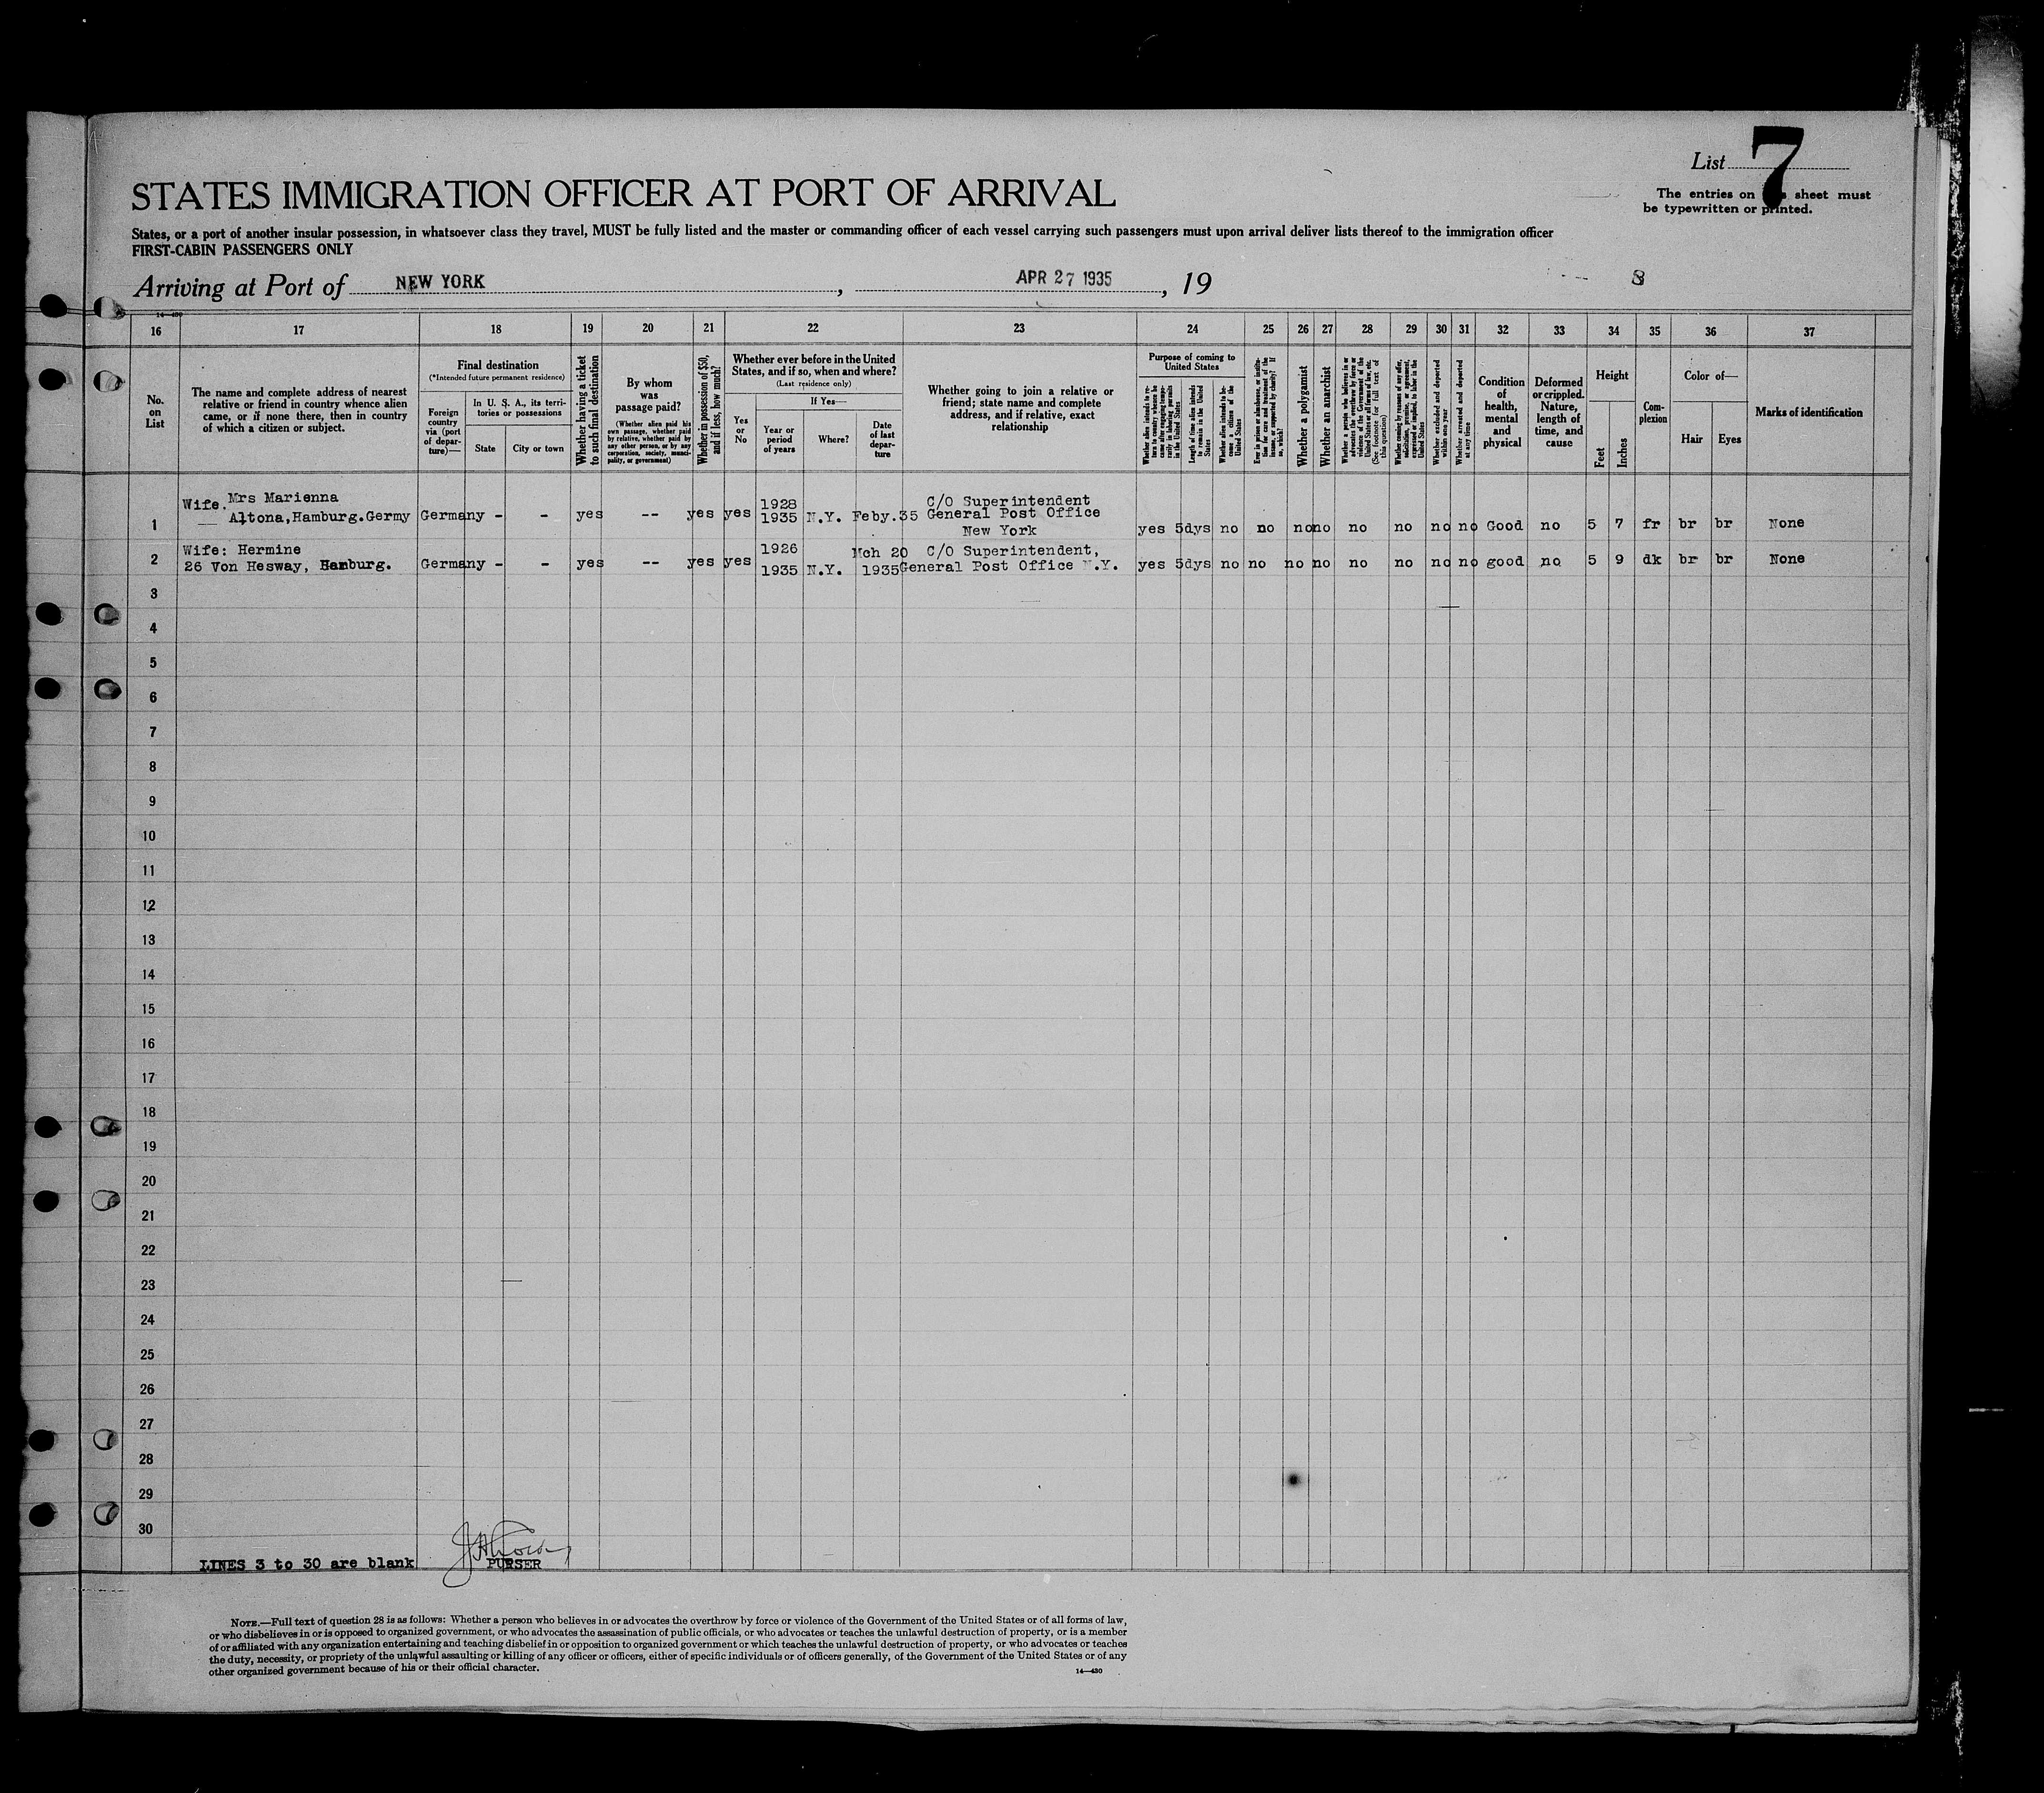 List 7
STATES IMMIGRATION OFFICER AT PORT OF ARRIVAL
The entries on sheet must
be typewritten or printed.
States, or a port of another insular possession, in whatsoever class they travel, MUST be fully listed and the master or commanding officer of each vessel carrying such passengers must upon arrival deliver lists thereof to the immigration officer
FIRST-CABIN PASSENGERS ONLY
Arriving at Port of NEW YORK, APR 27 1935, 19
8
14—430
16 17 18 19 20 21 22 23 24 25 26 27 28 29 30 31 32 33 34 35 36 37
No.
on
List
The name and complete address of nearest
relative or friend in country whence alien
came, or if none there, then in country
of which a citizen or subject.
Final destination
(*Intended future permanent residence)
Foreign
country
via (port
of depar-
ture)—
In U. S. A., its terri-
tories or possessions
State
City or town
Whether having a ticket
to such final destination
By whom
was
passage paid?
(Whether alien paid his
own passage, whether paid
by relative, whether paid by
any other person, or by any
corporation, society, munici-
pality, or government)
Whether in possession of $50,
and if less, how much?
Whether ever before in the United
States, and if so, when and where?
(Last residence only)
Yes
or
No
If Yes—
Year or
period
of years
Where?
Date
of last
depar-
ture
Whether going to join a relative or
friend; state name and complete
address, and if relative, exact
relationship
Purpose of coming to
United States
Whether alien intends to re-
turn to country whence he
came after engaging tempo-
rarily in laboring pursuits
in the United States
Length of time alien intends
to remain in the United
States
Whether alien intends to be-
come a citizen of the
United States
Ever in prison or almshouse, or institu-
tion for care and treatment of the
insane, or supported by charity? If
so, which?
Whether a polygamist
Whether an anarchist
Whether a person who believes in or
advocates the overthrow by force or
violence of the Government of the
United States or all forms of law, etc.
(See footnote for full text of
this question)
Whether coming by reason of any offer,
solicitation, promise, or agreement,
expressed or implied, to labor in the
United States
Whether excluded and deported
within one year
Whether arrested and deported
at any time
Condition
of
health,
mental
and
physical
Deformed
or crippled.
Nature,
length of
time, and
cause
Height
Feet
Inches
Com-
plexion
Color of—
Hair
Eyes
Marks of identification
1 Wife. Mrs Marienna
Altona,Hamburg.Germy Germany - - yes -- yes yes 1928
1935 N.Y. Feby.35 C/O Superintendent
General Post Office
New York yes 5dys no no no no no no no no Good no 5 7 fr br br None
2 Wife: Hermine
26 Von Hesway, Hamburg. Germany - - yes -- yes yes 1926
1935 N.Y. Mch 20
1935 C/O Superintendent,
General Post Office N.Y. yes 5dys no no no no no no no no good no 5 9 dk br br None
3
4
5
6
7
8
9
10
11
12
13
14
15
16
17
18
19
20
21
22
23
24
25
26
27
28
29
30
LINES 3 to 30 are blank
PURSER
NOTE.—Full text of question 28 is as follows: Whether a person who believes in or advocates the overthrow by force or violence of the Government of the United States or of all forms of law,
or who disbelieves in or is opposed to organized government, or who advocates the assassination of public officials, or who advocates or teaches the unlawful destruction of property, or is a member
of or affiliated with any organization entertaining and teaching disbelief in or opposition to organized government or which teaches the unlawful destruction of property, or who advocates or teaches
the duty, necessity, or propriety of the unlawful assaulting or killing of any officer or officers, either of specific individuals or of officers generally, of the Government of the United States or of any
other organized government because of his or their official character.
14—430